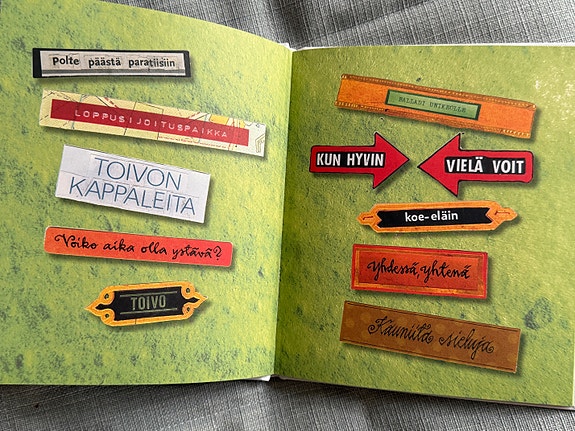 Polte päästä paratiisiin
LOPPUSIJOITUSPAIKKA
TOIVON
KAPPALEITA
Voiko aika olla ystävä?
TOIVO
BALLADI UNIKKOLLE
KUN HYVIN
VIELÄ VOIT
koe-eläin
Yhdessä, yhtenä
Kauniita sieluja